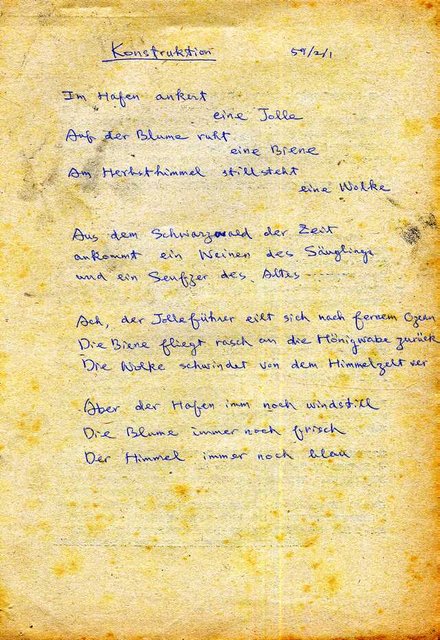 Konstruktion 59/2/1
Im Hafen ankert
eine Jolle
Auf der Blume ruht
eine Biene
Am Herbsthimmel stillsteht
eine Wolke
Aus dem Schwarzwald der Zeit
ankommt ein Weinen des Säuglings
und ein Seufzer des Altes
Ach, der Jolleführer eilt sich nach fernem Ozean
Die Biene fliegt rasch an die Hönigwabe zurück
Die Wolke schwindet von dem Himmelzelt ver
Aber der Hafen imm noch windstill
Die Blume immer noch frisch
Der Himmel immer noch blau